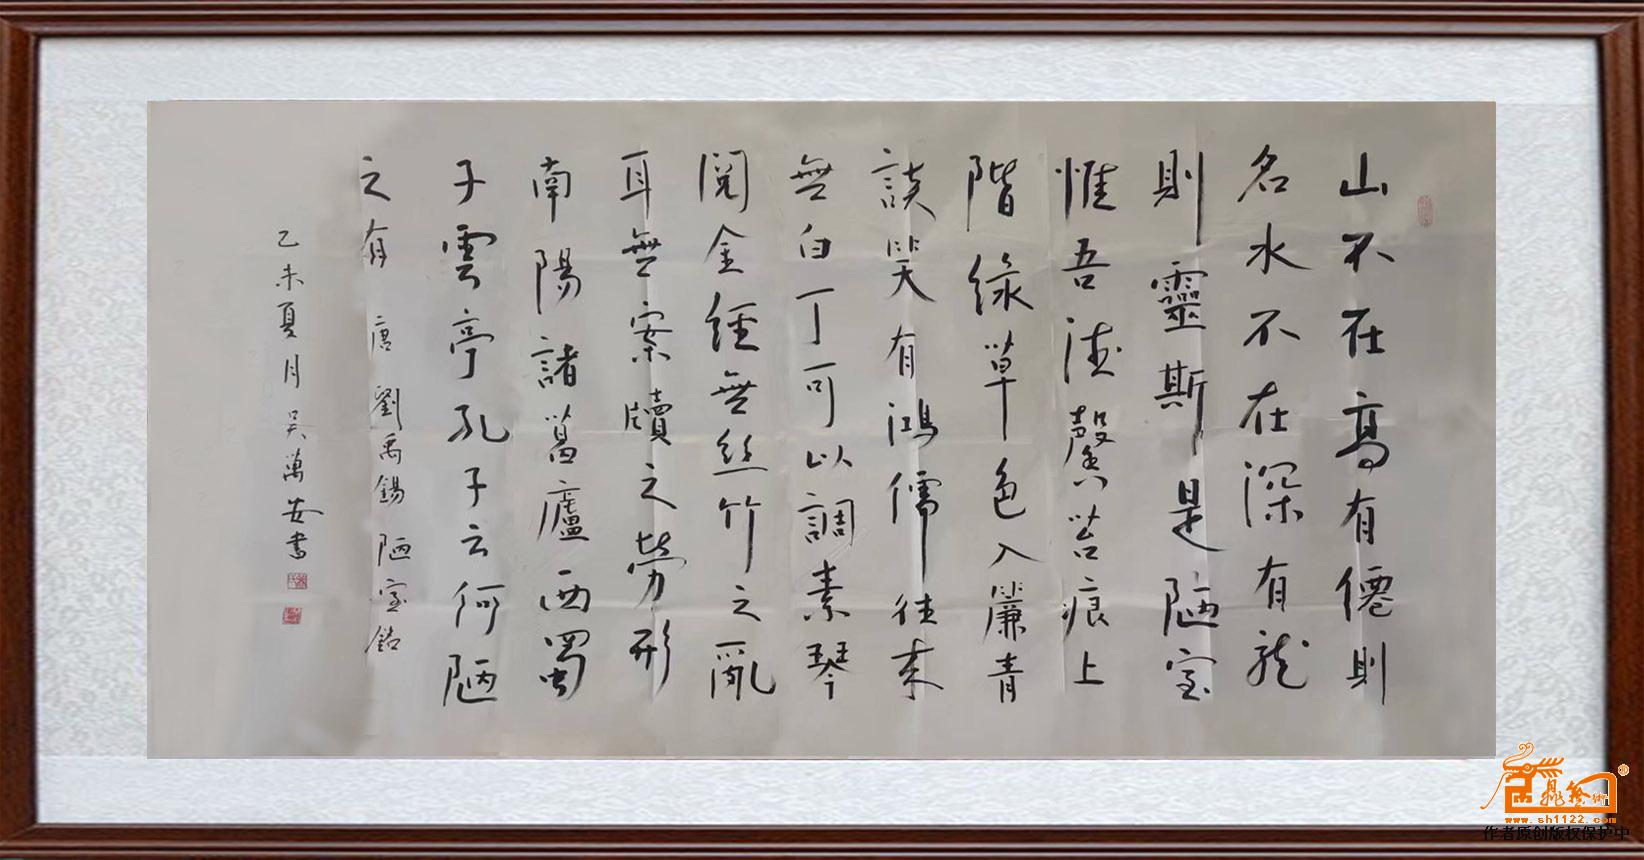 山不在高有僊則
名水不在深有龍
則靈斯是陋室
惟吾德馨苔痕上
階緑草色入簾青
談笑有鴻儒往來
無白丁可以調素琴
閲金經無丝竹之亂
耳無案牘之勞形
南陽諸葛廬西蜀
子雲亭孔子云何陋
之有 唐 劉禹錫 陋室銘
乙未夏月吴萬安書
www.sh1122.com
作者原创版权保护中